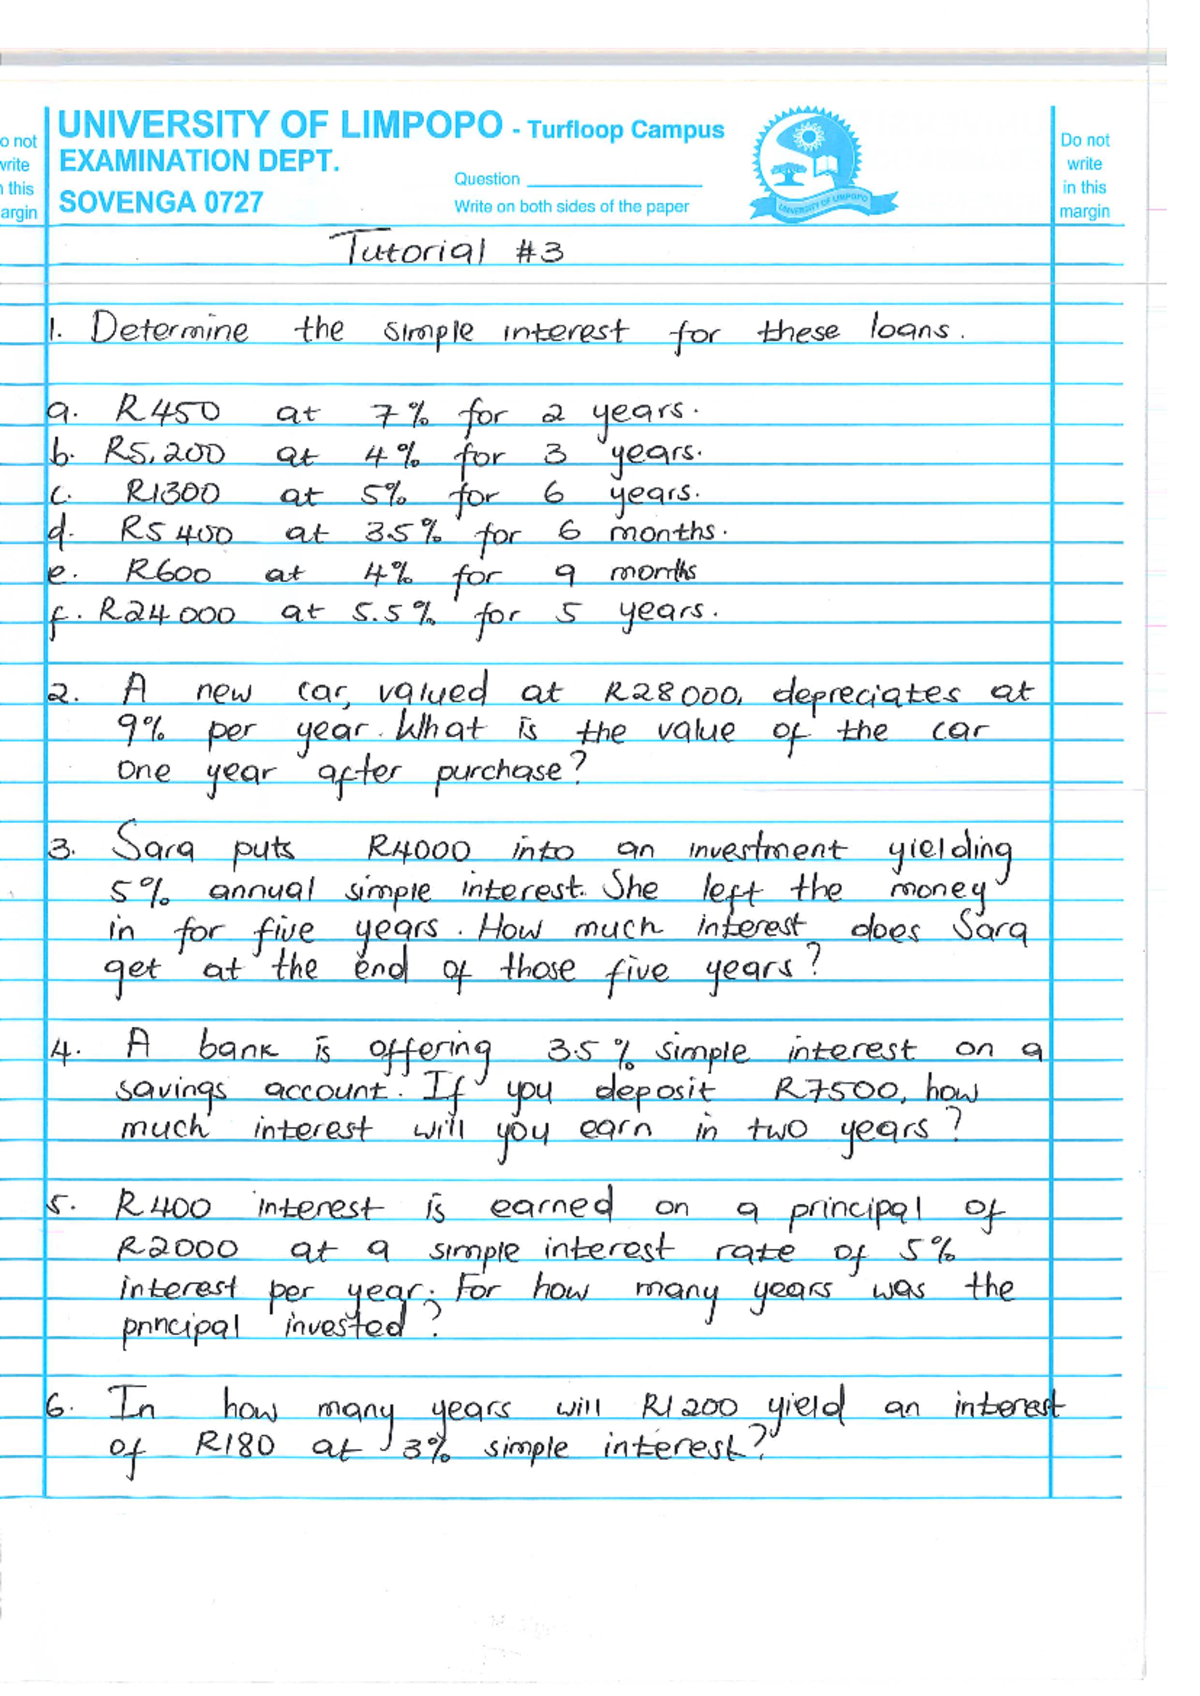 UNIVERSITY OF LIMPOPO - Turfloop Campus
EXAMINATION DEPT.
SOVENGA 0727
Question
Write on both sides of the paper
UNIVERSITY OF LIMPOPO
o not
write
n this
argin
Do not
write
in this
margin
Tutorial #3
1. Determine the simple interest for these loans.
a. R450 at 7% for 2 years.
b. R5,200 at 4% for 3 years.
c. R1300 at 5% for 6 years.
d. R5 400 at 3.5% for 6 months.
e. R600 at 4% for 9 months
f. R24 000 at 5.5% for 5 years.
2. A new car, valued at R28 000, depreciates at
9% per year. What is the value of the car
one year after purchase?
3. Sara puts R4000 into an investment yielding
5% annual simple interest. She left the money
in for five years. How much interest does Sara
get at the end of those five years?
4. A bank is offering 3.5% simple interest on a
savings account. If you deposit R7500, how
much interest will you earn in two years?
5. R400 interest is earned on a principal of
R2000 at a simple interest rate of 5%
interest per year. For how many years was the
principal invested?
6. In how many years will R1200 yield an interest
of R180 at 3% simple interest?